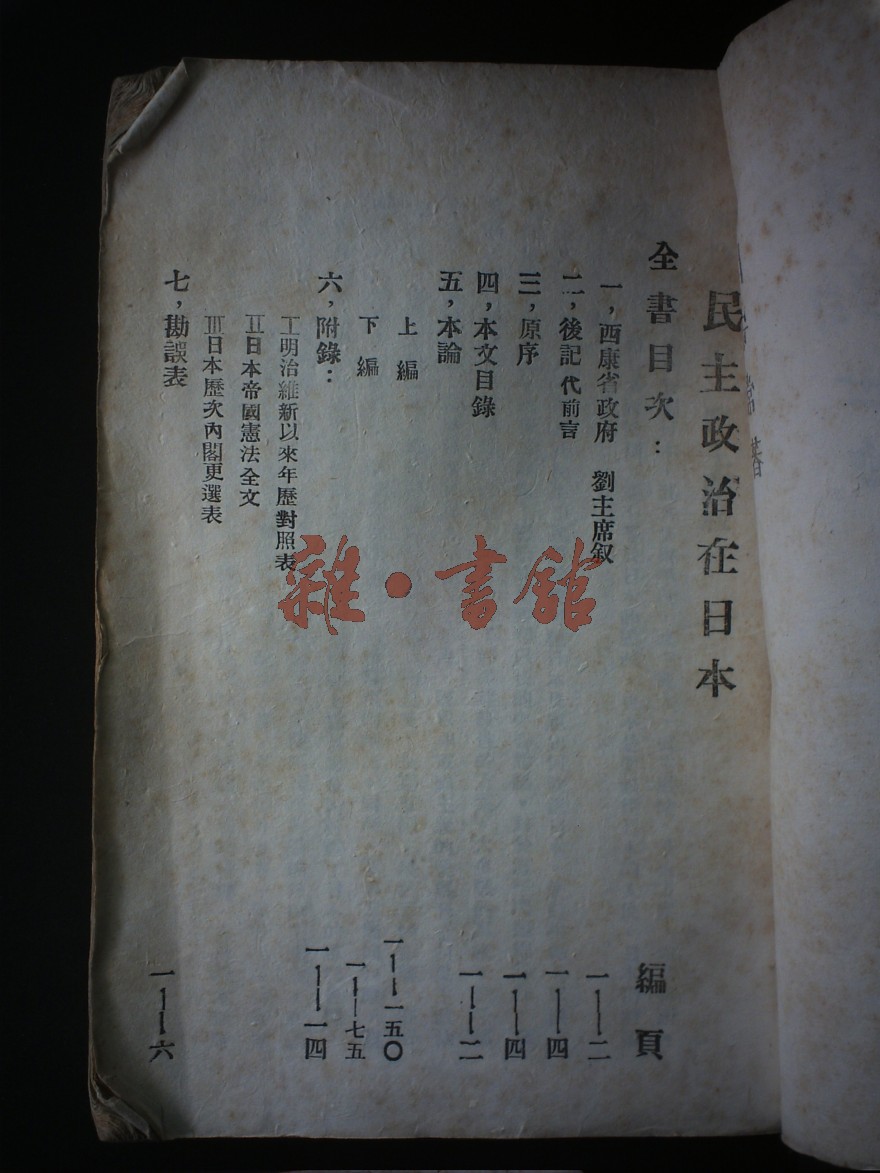 民主政治在日本
全書目次： 編頁
一，西康省政府 劉主席叙 一——二
二，後記代前言 一——四
三，原序 一——四
四，本文目錄 一——二
五，本論
上編 一——一五〇
下編 一——七五
六，附錄： 一——一四
I明治維新以來年歷對照表
II日本帝國憲法全文
III日本歷次內閣更選表
七，勘誤表 一——六
雜·書館